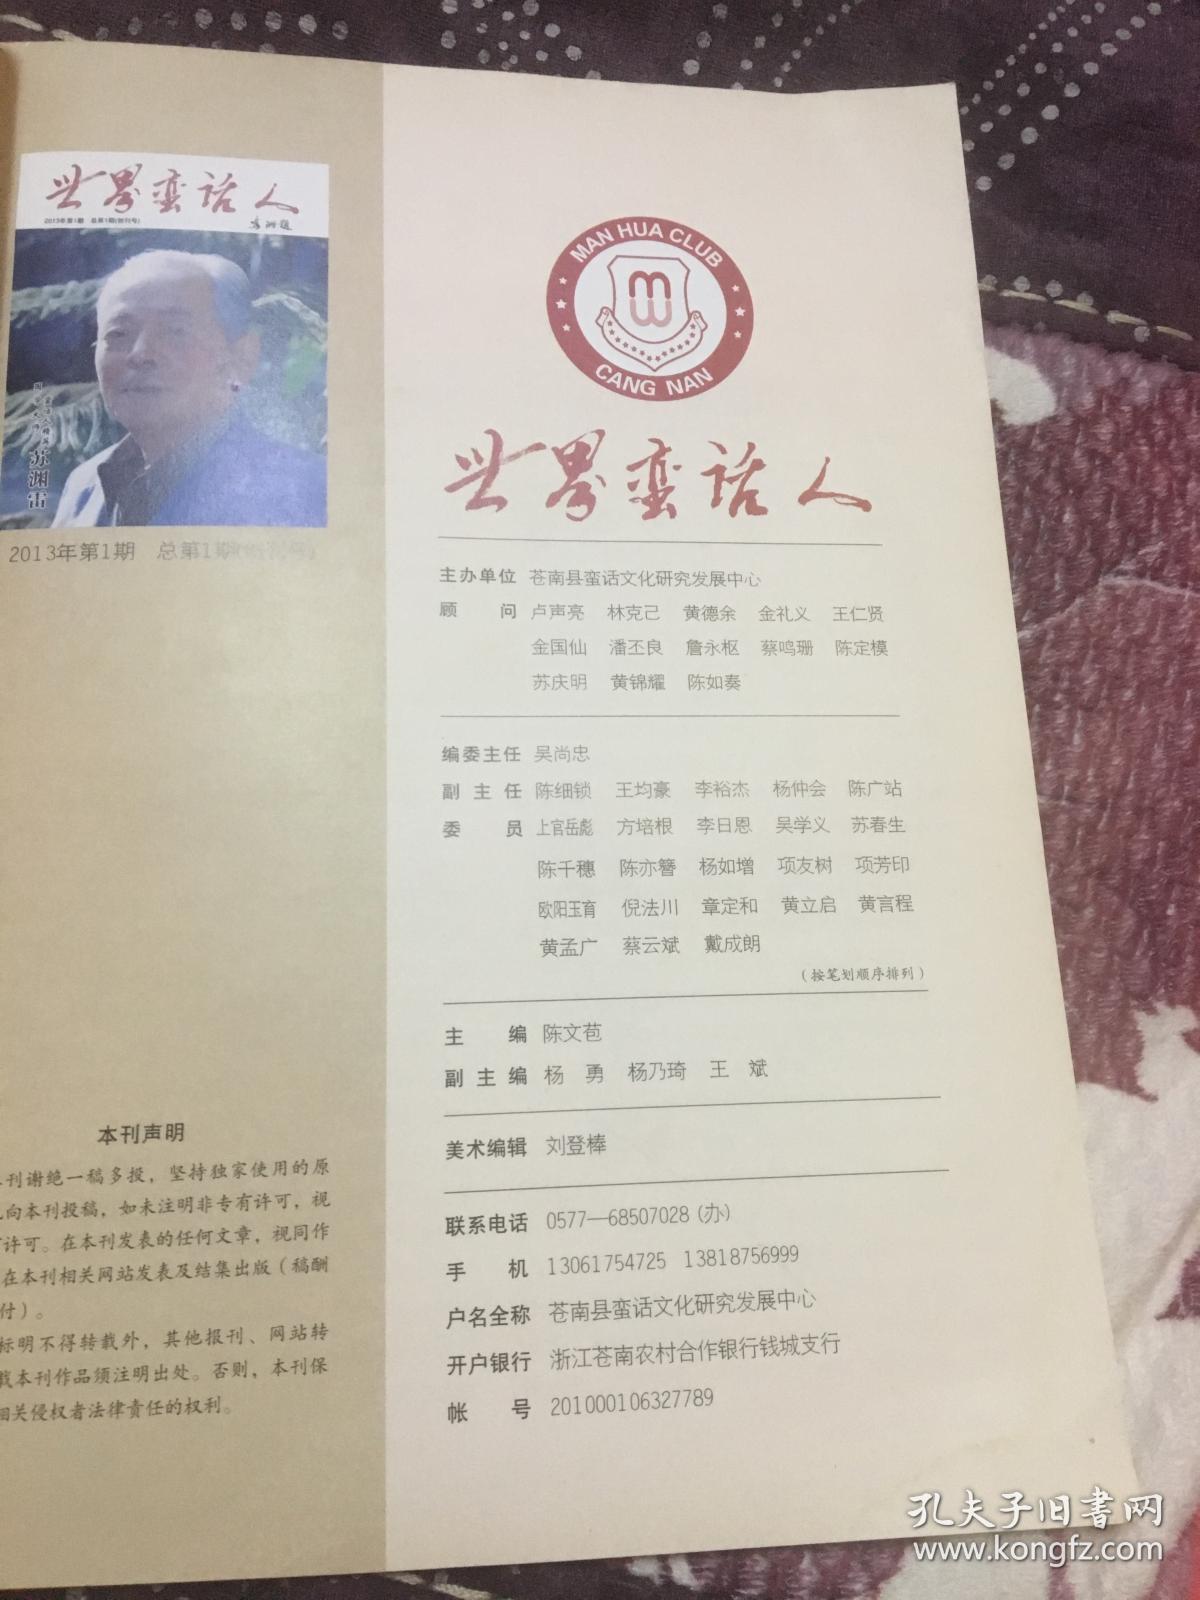 世界蛮话人
2013年第1期 总第1期(创刊号)
国学大师
苏渊雷
2013年第1期 总第1期(创刊号)
本刊声明
刊谢绝一稿多投，坚持独家使用的原
向本刊投稿，如未注明非专有许可，视
许可。在本刊发表的任何文章，视同作
在本刊相关网站发表及结集出版（稿酬
付）。
标明不得转载外，其他报刊、网站转
载本刊作品须注明出处。否则，本刊保
相关侵权者法律责任的权利。
MAN HUA CLUB
CANG NAN
世界蛮话人
主办单位 苍南县蛮话文化研究发展中心
顾问 卢声亮 林克己 黄德余 金礼义 王仁贤
金国仙 潘丕良 詹永枢 蔡鸣珊 陈定模
苏庆明 黄锦耀 陈如奏
编委主任 吴尚忠
副主任 陈细锁 王均豪 李裕杰 杨仲会 陈广站
委员 上官岳彪 方培根 李日恩 吴学义 苏春生
陈千穗 陈亦簪 杨如增 项友树 项芳印
欧阳玉育 倪法川 章定和 黄立启 黄言程
黄孟广 蔡云斌 戴成朗
（按笔划顺序排列）
主编 陈文苞
副主编 杨勇 杨乃琦 王斌
美术编辑 刘登棒
联系电话 0577—68507028（办）
手机 13061754725 13818756999
户名全称 苍南县蛮话文化研究发展中心
开户银行 浙江苍南农村合作银行钱城支行
帐号 201000106327789
孔夫子旧书网
www.kongfz.com